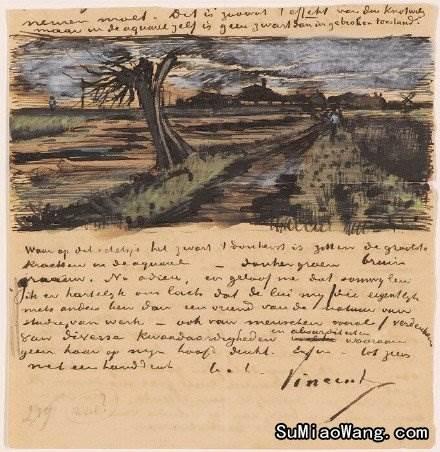 nemen moet. Dit is zoowat 't effekt van den Knotwilg
maar in de aquarel zelf is geen zwart dan in gebroken toestand
Waar op dit schetsje het zwart 't donkerst is zitten de grootste
krachten in de aquarel — donker groen bruin
graauw. No adieu, en geloof me dat soms
ik er hartelijk om lach dat de lui my die eigentlyk
niets anders ben dan een vriend van de natuur van
studie van werk — ook van menschen vooral verdenken
van diverse kwaadaardigheden en absurditeiten waaraan
geen haar op myn hoofd denkt. Enfin — tot ziens
met een handdruk t. à t. Vincent
SuMiaoWang.com